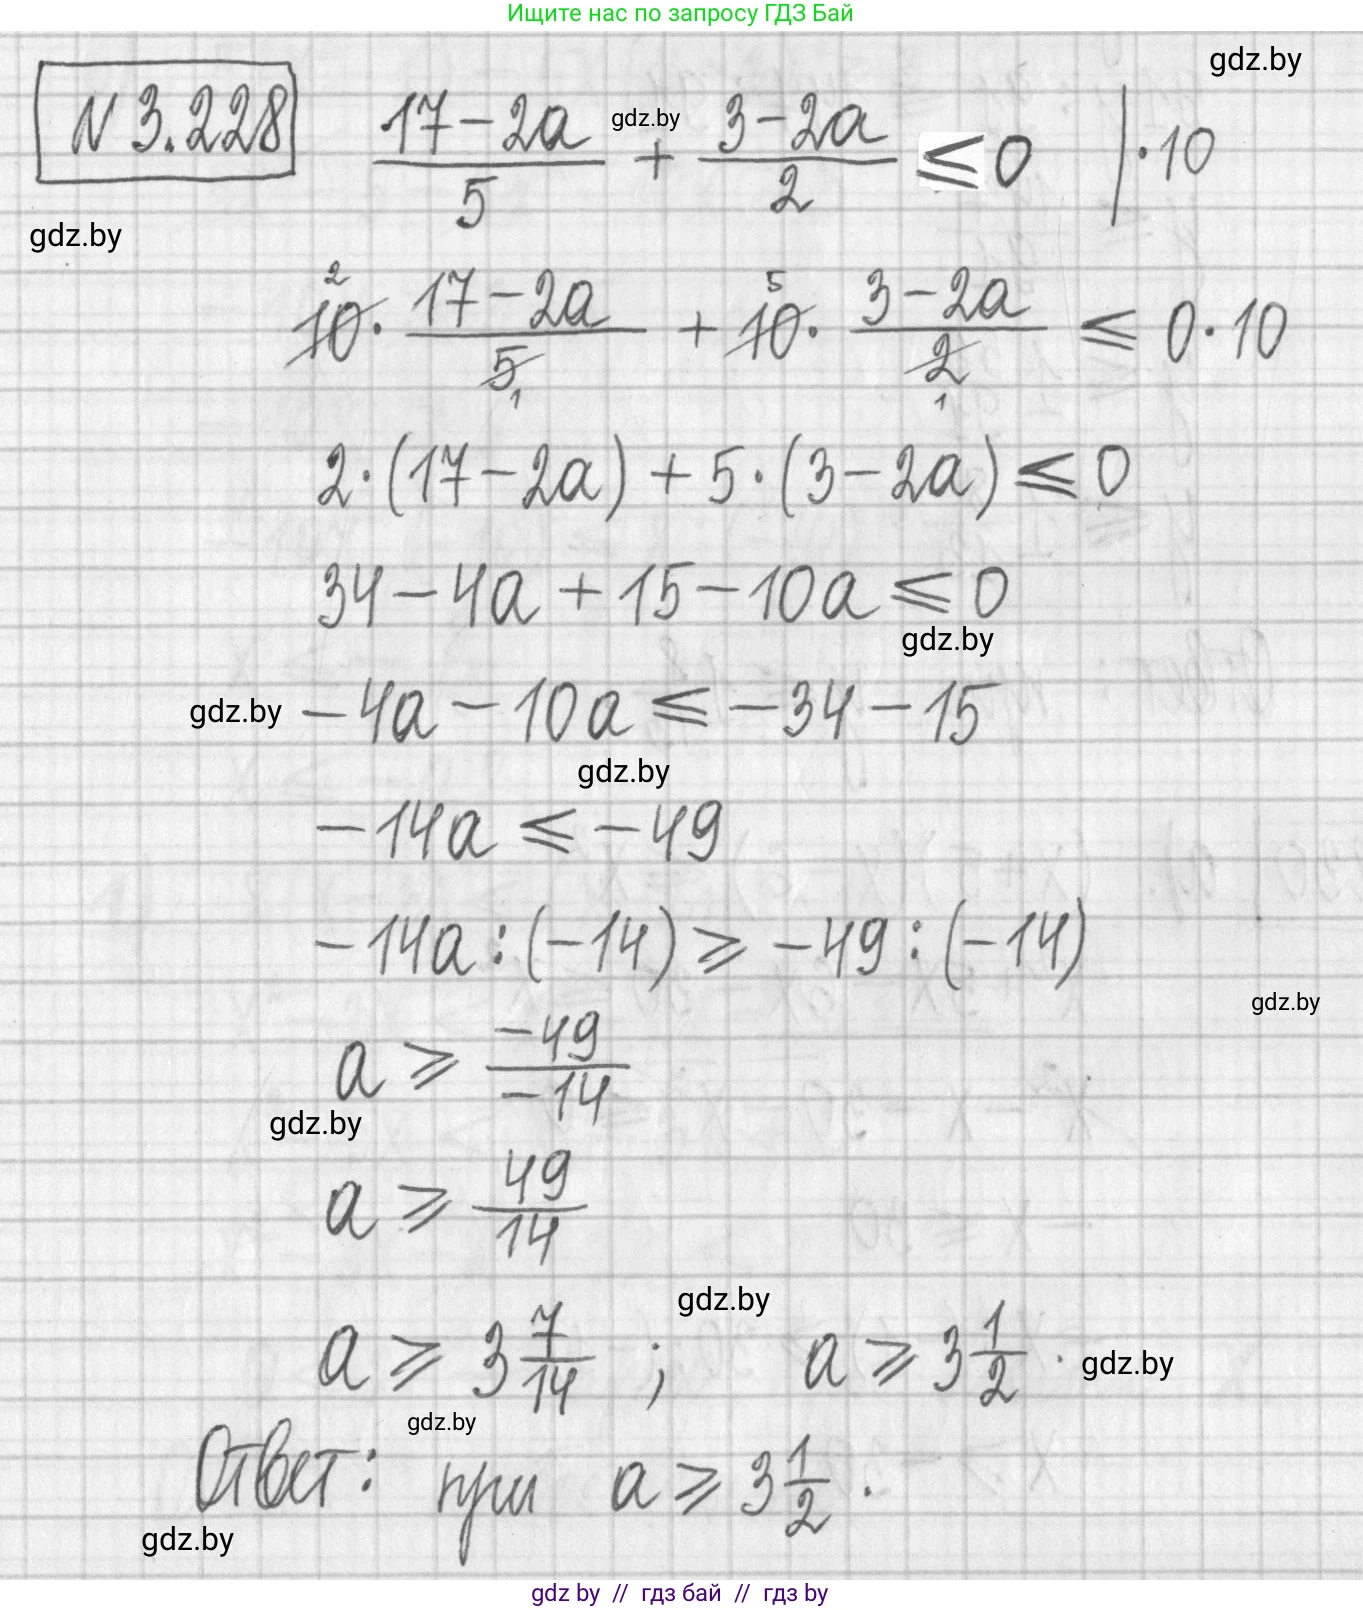 Ищите нас по запросу ГДЗ Бай
gdz.by
N 3.228 (17-2a)/5 + (3-2a)/2 ⩽ 0 | ·10
gdz.by
gdz.by
2 5
10 · (17-2a)/5 + 10 · (3-2a)/2 ⩽ 0·10
1 1
2·(17-2a)+5·(3-2a)⩽0
34-4a+15-10a⩽0
gdz.by
gdz.by -4a-10a⩽-34-15
gdz.by
-14a⩽-49
-14a:(-14)⩾-49:(-14)
gdz.by
a⩾ -49/-14
gdz.by
a⩾ 49/14
gdz.by
a⩾3 7/14 ; a⩾3 1/2 . gdz.by
gdz.by
Ответ: при a⩾3 1/2 .
gdz.by
gdz by // гдз бай // гдз by